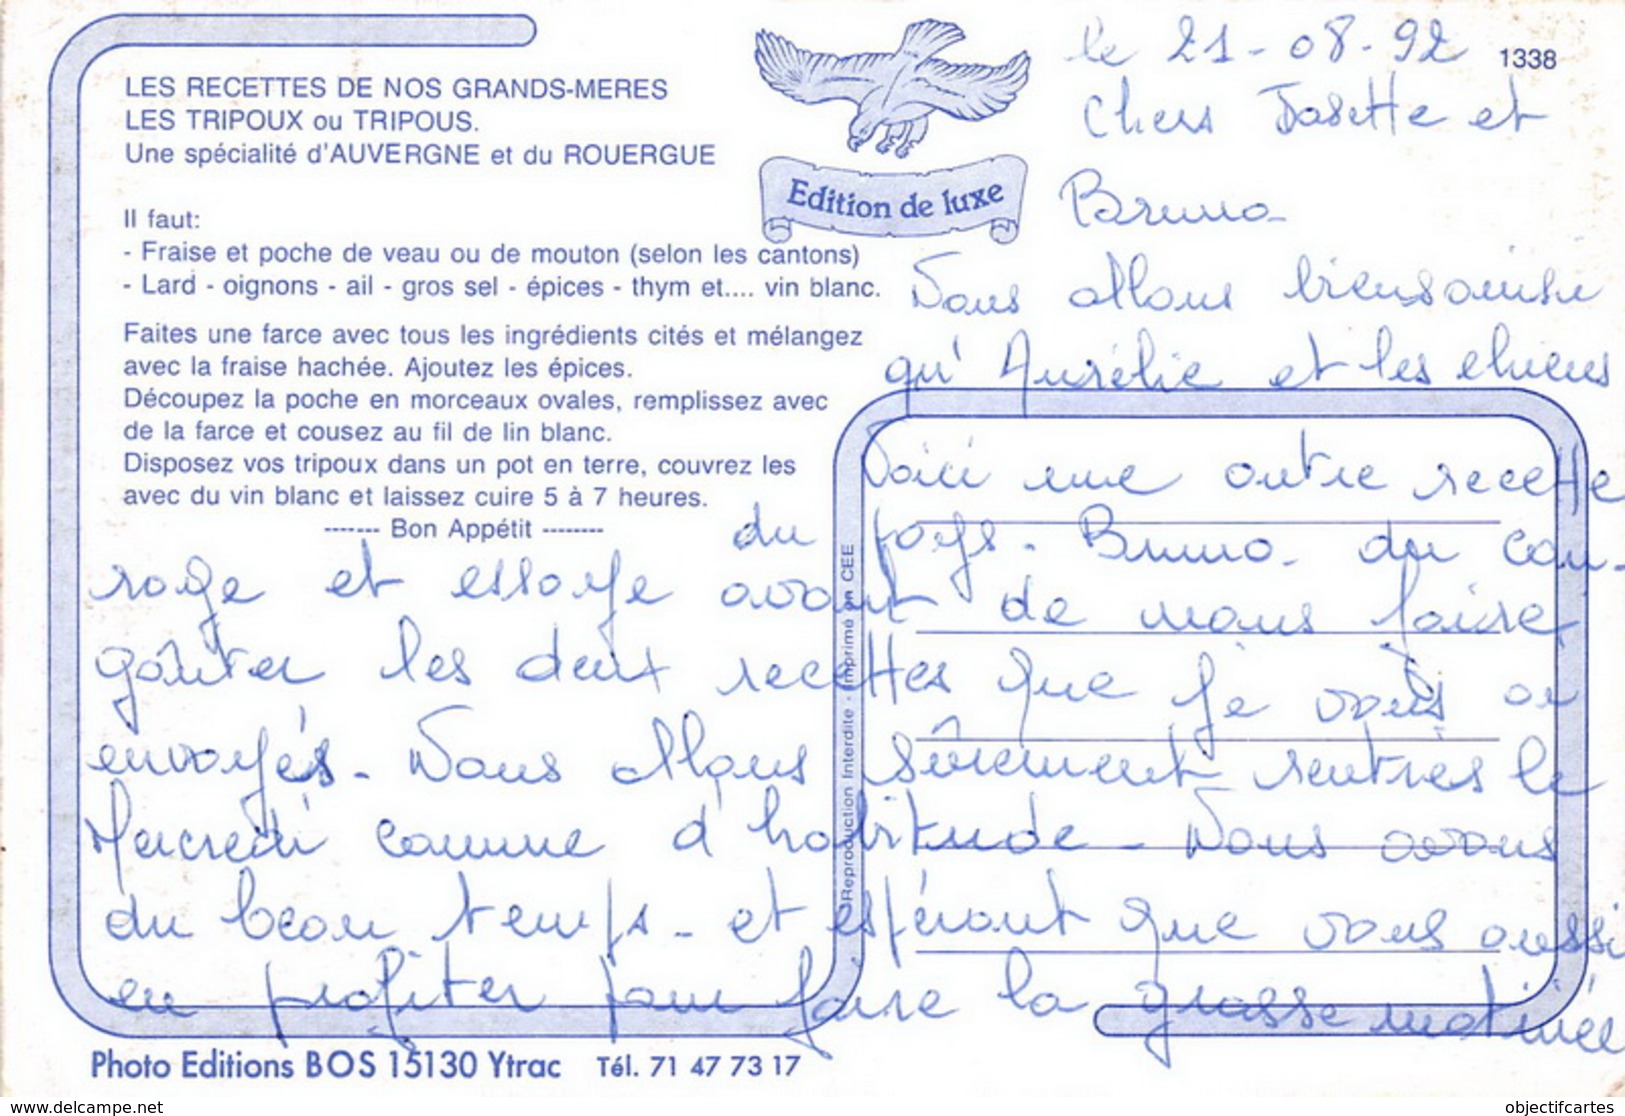 LES RECETTES DE NOS GRANDS-MERES
LES TRIPOUX ou TRIPOUS.
Une spécialité d'AUVERGNE et du ROUERGUE
Il faut:
- Fraise et poche de veau ou de mouton (selon les cantons)
- Lard - oignons - ail - gros sel - épices - thym et.... vin blanc.
Faites une farce avec tous les ingrédients cités et mélangez
avec la fraise hachée. Ajoutez les épices.
Découpez la poche en morceaux ovales, remplissez avec
de la farce et cousez au fil de lin blanc.
Disposez vos tripoux dans un pot en terre, couvrez les
avec du vin blanc et laissez cuire 5 à 7 heures.
------- Bon Appétit --------
Edition de luxe
1338
le 21-08-92
Chers Josette et
Bruno
Nous allons bien
qu'Aurélie et les chiens
Voici une autre recette
du pays. Bruno. du cou-
rage et essaye avant de nous faire
goûter les deux recettes que je vous ai
envoyés. Nous allons sûrement rentrés le
Mercredi comme d'habitude. Nous avons
du beau temps. et espérant que vous aussi
en profiter pour faire la grasse matinée
Reproduction Interdite - Imprimé en CEE
Photo Editions BOS 15130 Ytrac Tél. 71 47 73 17
www.delcampe.net
objectifcartes